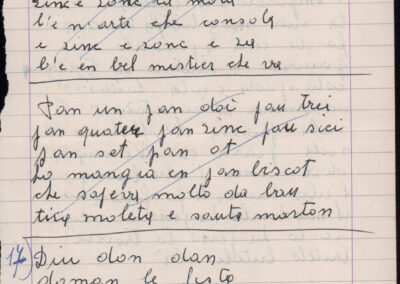 zinc e zonc la mola
l'e n'arte che consola
e zinc e zonc e za
l'e en bel mistier che va
Pan un pan doi pan trei
pan quater pan zinc pan sici
pan set pan ot
Lo mangià en pan biscot
che saveva molto da bon
tira moleta e santa marton
17) Din don dan
doman le festa